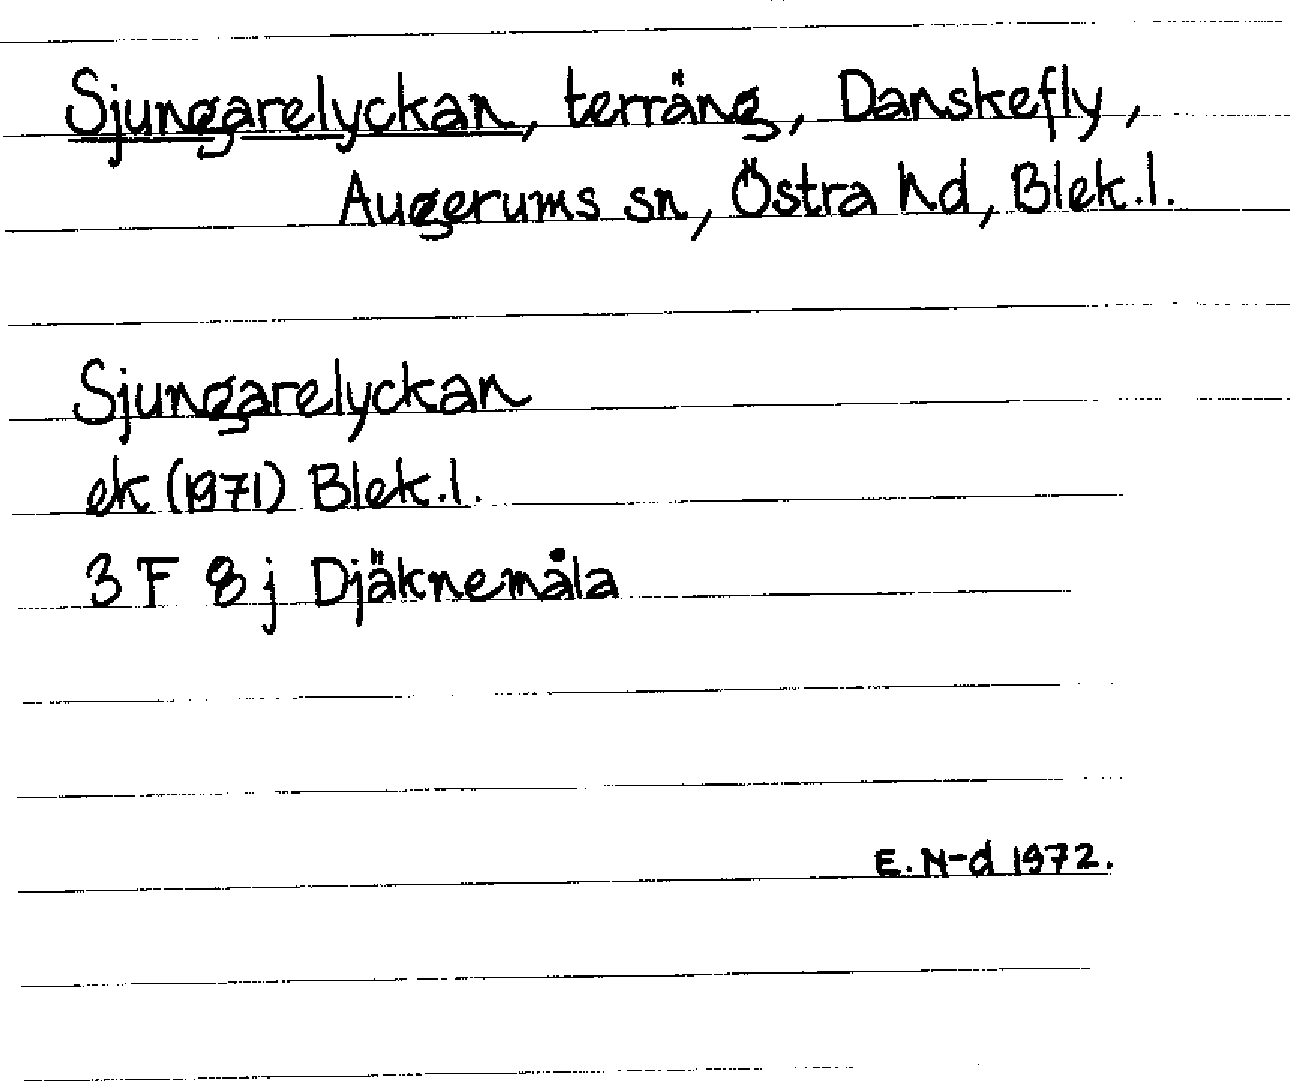 Sjungarelyckan, terräng, Danskefly,
Augerums sn, Östra hd, Blek.l.
Sjungarelyckan
ek (1971) Blek.l.
3 F 8 j Djäknemåla
E. N-d 1972.